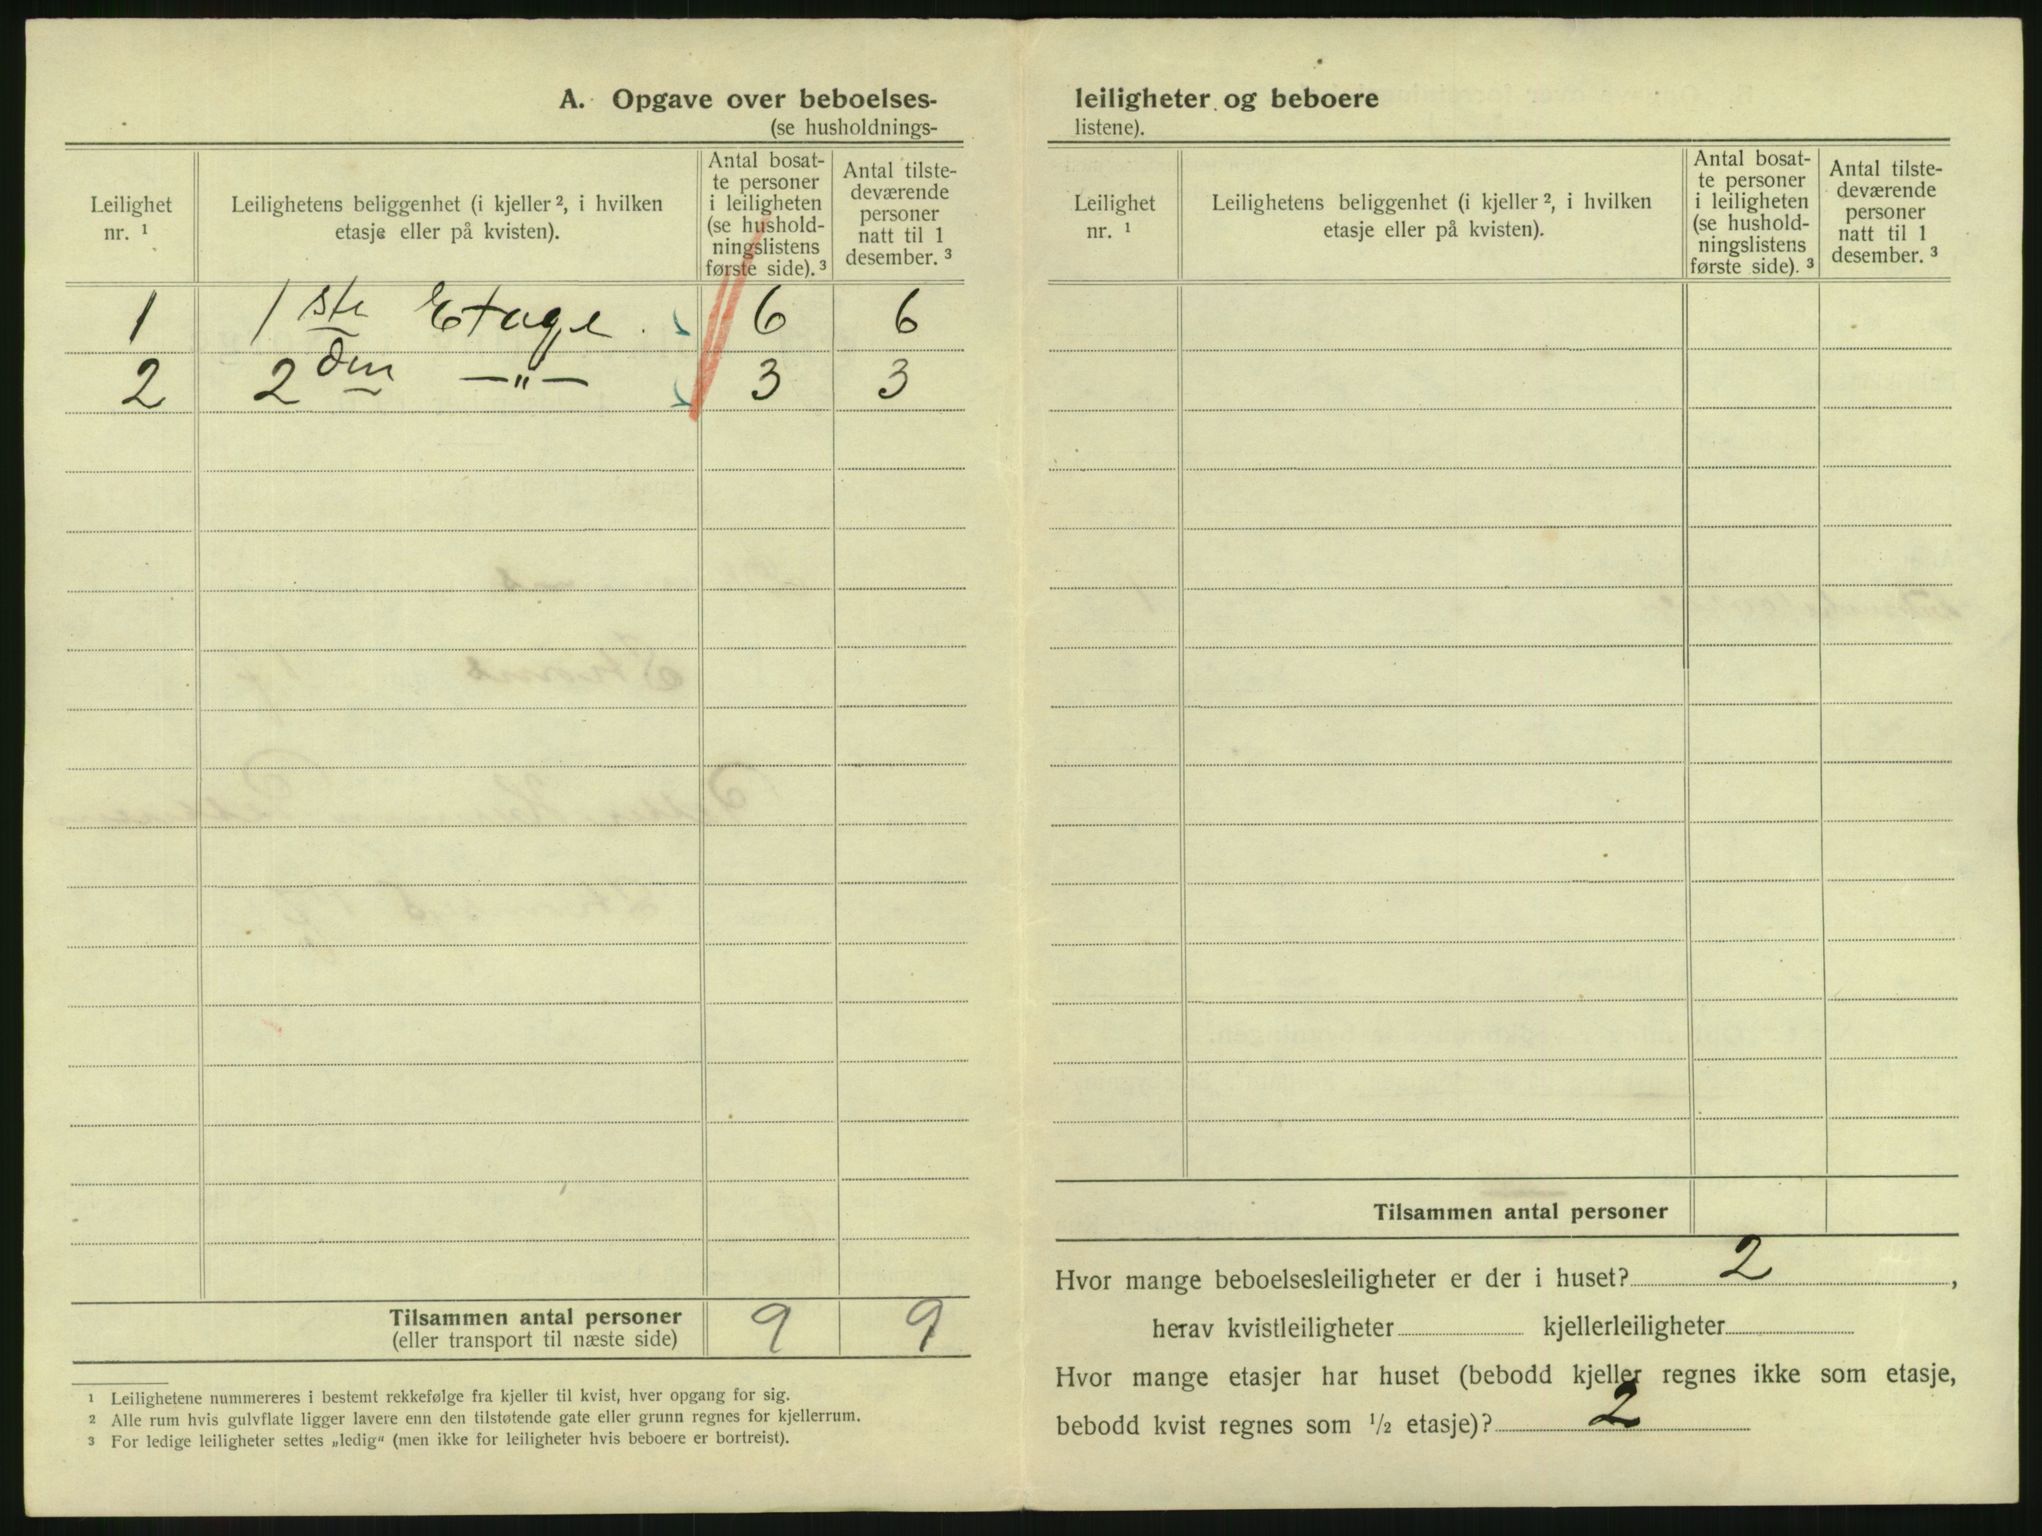 A. Opgave over beboelses-
(se husholdnings-
Leilighet nr. ¹
Leilighetens beliggenhet (i kjeller ², i hvilken etasje eller på kvisten).
Antal bosat-
te personer
i leiligheten
(se hushold-
ningslistens
første side). ³
Antal tilste-
deværende
personer
natt til 1
desember. ³
1 1ste Etage 6 6
2 2den —"— 3 3
Tilsammen antal personer 9 9
(eller transport til næste side)
¹ Leilighetene nummereres i bestemt rekkefølge fra kjeller til kvist, hver opgang for sig.
² Alle rum hvis gulvflate ligger lavere enn den tilstøtende gate eller grunn regnes for kjellerrum.
³ For ledige leiligheter settes „ledig“ (men ikke for leiligheter hvis beboere er bortreist).
leiligheter og beboere
listene).
Leilighet nr. ¹
Leilighetens beliggenhet (i kjeller ², i hvilken etasje eller på kvisten).
Antal bosat-
te personer
i leiligheten
(se hushold-
ningslistens
første side). ³
Antal tilste-
deværende
personer
natt til 1
desember. ³
Tilsammen antal personer
Hvor mange beboelsesleiligheter er der i huset? 2,
herav kvistleiligheter kjellerleiligheter
Hvor mange etasjer har huset (bebodd kjeller regnes ikke som etasje,
bebodd kvist regnes som ½ etasje)? 2